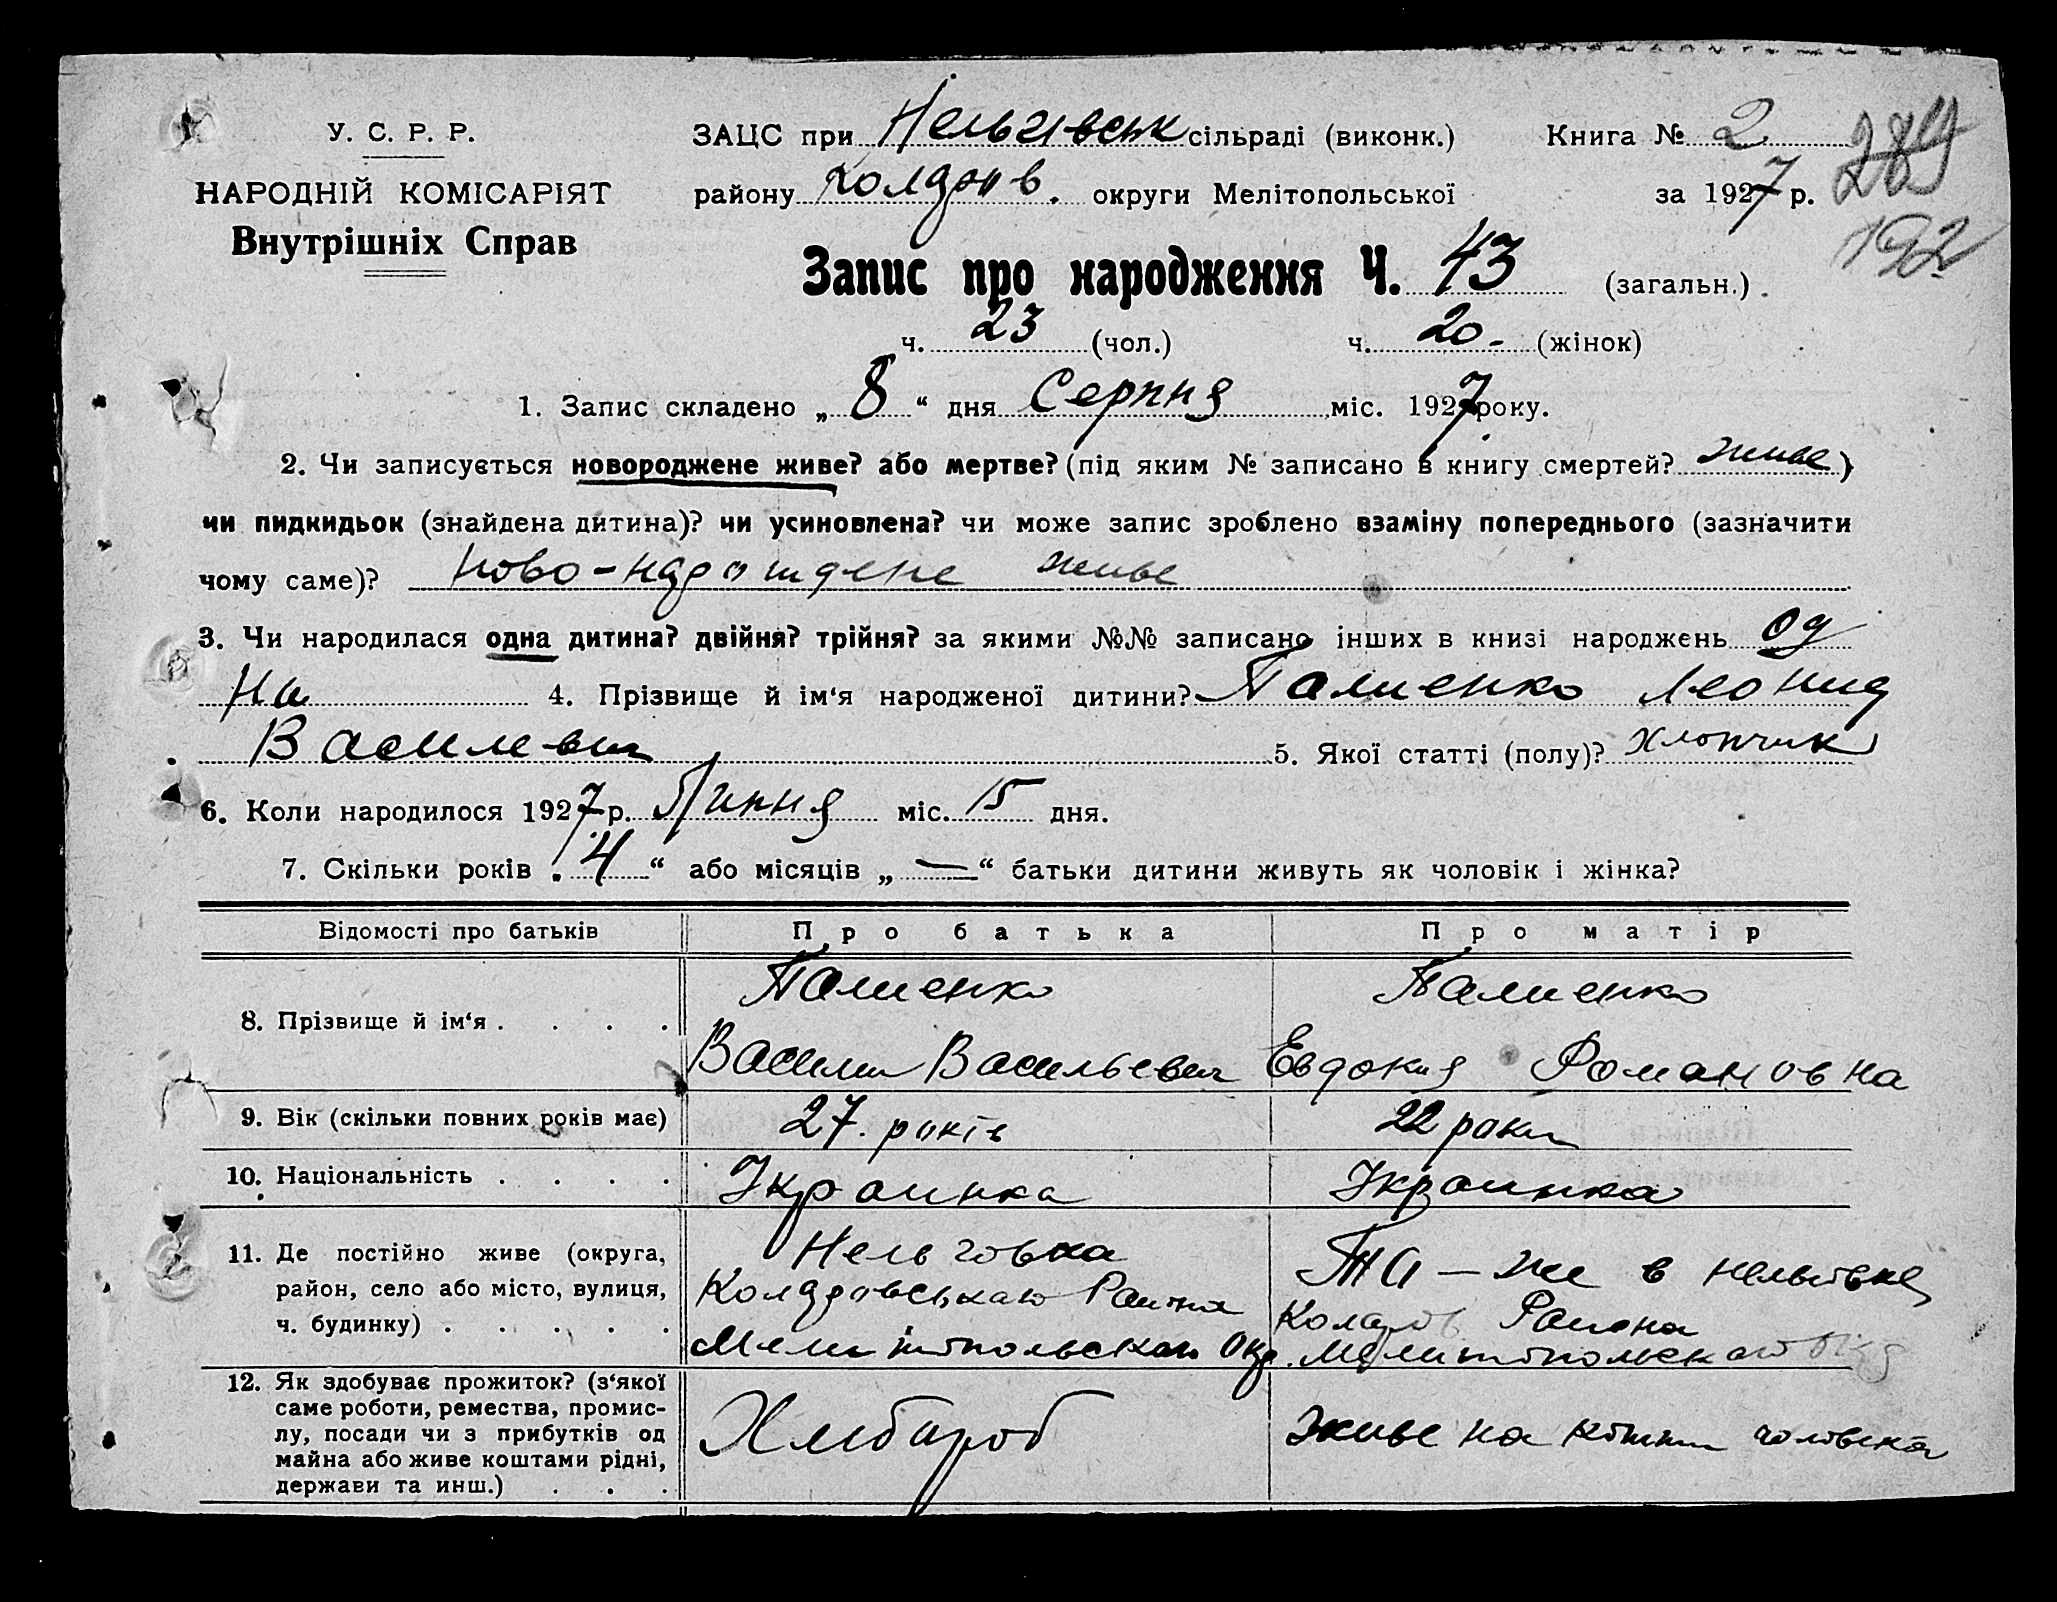 У. С. Р. Р.
НАРОДНІЙ КОМІСАРІЯТ
Внутрішніх Справ
ЗАЦС при Нельгівськ сільраді (виконк.) Книга № 2
району Колдров. округи Мелітопольської за 1927 р.
289
192
Запис про народження Ч. 43 (загальн.)
ч. 23 (чол.) ч. 20 - (жінок)
1. Запис складено „ 8 “ дня Серпня міс. 1927 року.
2. Чи записується новороджене живе? або мертве? (під яким № записано в книгу смертей? живе)
чи пидкидьок (знайдена дитина)? чи усиновлена? чи може запис зроблено взаміну попереднього (зазначити
чому саме)? ново-нарошдене живе
3. Чи народилася одна дитина? двійня? трійня? за якими №№ записано інших в книзі народжень од
на 4. Прізвище й ім‘я народженої дитини? Палиенко Леонид
Василевич 5. Якої статті (полу)? Хлопчик
6. Коли народилося 1927 р. Липня міс. 15 дня.
7. Скільки років „ 4 “ або місяців „ — “ батьки дитини живуть як чоловік і жінка?
Відомості про батьків Про батька Про матір
8. Прізвище й ім‘я . . . . Палиенко Палиенко
Васили Васильевич Евдокия Романовна
9. Вік (скільки повних років має) 27. років 22 роки
10. Національність . . . . Украинка Украинка
11. Де постійно живе (округа, район, село або місто, вулиця, ч. будинку) . . . . .
Нельговка
Колдровськаго Раиона
Мелитопольскаго Окр.
Та - же в Нельговке
Колдров Раиона
Мелитопольскаго
12. Як здобуває прожиток? (з‘якої саме роботи, ремества, промислу, посади чи з прибутків од майна або живе коштами рідні, держави та инш.) . . .
Хлибароб
живе на кошти чоловека